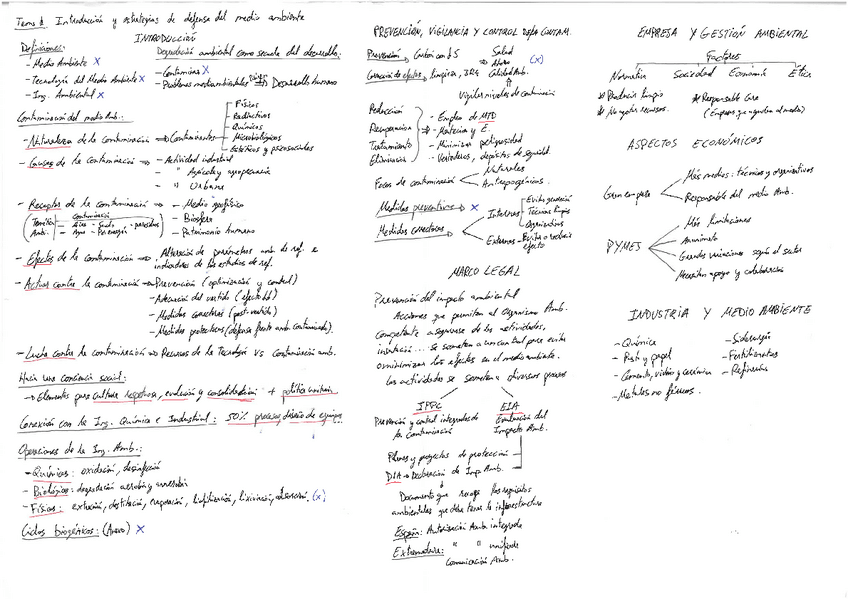 Tema 1 Introducción y estrategias de defensa del medio ambiente
INTRODUCCIÓN
Definiciones:
- Medio Ambiente x
- Tecnología del Medio Ambiente x
- Ing. Ambiental x
Degradación ambiental como secuela del desarrollo.
- Contaminar x
- Problemas medioambientales Desarrollo humano
Contaminación del medio Amb.
- Naturaleza de la contaminación → Contaminantes
- Físicos
- Radiactivos
- Químicos
- Microbiológicos
- Estéticos y psicosociales
- Causas de la contaminación → - Actividad industrial
- " Agrícola y agropecuaria
- " Urbana
- Receptor de la contaminación → - Medio geofísico
- Biosfera
- Patrimonio humano
- Aire - Suelo
- Agua
- Efectos de la contaminación → Alteración de parámetros amb. de ref. e
indicadores de los estudios de ref.
- Actuar contra la contaminación → Prevención (optimización y control)
- Adecuación del vertido
- Medidas correctoras (post-vertido)
- Medidas protectoras (defensa frente amb. contaminado).
- Lucha contra la contaminación → Recursos de la Tecnología vs Contaminación amb.
Hacia una conciencia social:
→ Elementos para cultura respetuosa, evolución y consolidación + política unitaria
Conexión con la Ing. Química e Industrial: 50% procesos, diseño de equipos
Operaciones de la Ing. Amb.:
- Químicas: oxidación, desinfección
- Biológicas: degradación aerobia y anaerobia
- Físicas: extracción, destilación, evaporación, liofilización, lixiviación, adsorción, (x)
Ciclos biogénicos: (Anexo) x
PREVENCIÓN, VIGILANCIA Y CONTROL DE LA CONTAM.
Prevención → Control con + S
Salud
Ahorro
(x)
Corrección de efectos → limpieza, 3R Calidad Amb.
Vigilar niveles de contaminación
Reducción
Recuperación
Tratamiento
Eliminación
- Empleo de MTD
- Materia y E.
- Minimizar peligrosidad
- Vertederos, depósitos de seguridad.
Focos de contaminación
Naturales
Antropogénicos.
Medidas preventivas → x
Medidas correctoras
Internas
- Evitar generación
- Técnicas limpias
- Organizativas
Externas - Evitar o reducir
efecto
MARCO LEGAL
Prevención del impacto ambiental
Acciones que permiten al Organismo Amb.
Competente asegurarse de las actividades,
instalación... se someten a un control para evitar
o minimizar los efectos en el medio ambiente.
Las actividades se someten a diversos procesos
IPPC
Prevención y control integrados de
la contaminación
EIA
Evaluación del
Impacto Amb.
Planes y proyectos de protección
DIA → Declaración de Imp. Amb.
Documento que recoge los requisitos
ambientales que debe tener la infraestructura
España: Autorización Amb. integrada
Extremadura: " " unificada
Comunicación Amb.
EMPRESA Y GESTIÓN AMBIENTAL
Factores
Normativa Sociedad Economía Ética
* Producción limpia
* No agotar recursos.
* Responsible Care
(Empresas que ayudan al medio)
ASPECTOS ECONÓMICOS
Gran empresa
Más medios: técnicos y organizativos
Responsable del medio Amb.
PYMES
Más limitaciones
Anonimato
Grandes variaciones según el sector
Necesitan apoyo y colaboración
INDUSTRIA Y MEDIO AMBIENTE
- Química
- Pasta y papel
- Cemento, vidrio y cerámica
- Metales no férreos.
- Siderurgia
- Fertilizantes
- Refinerías